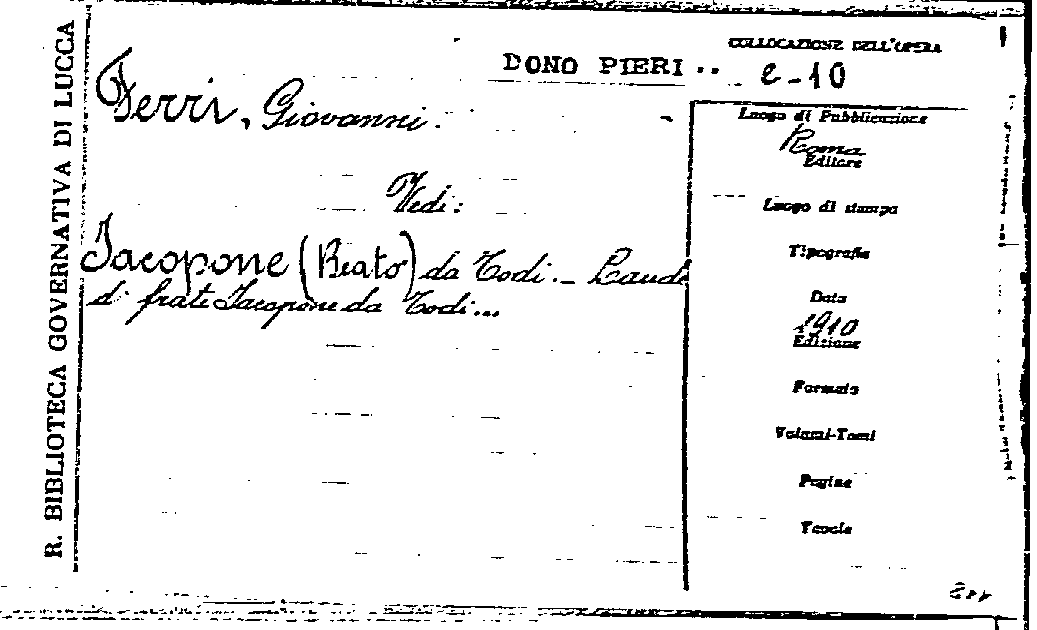 R. BIBLIOTECA GOVERNATIVA DI LUCCA
COLLOCAZIONE DELL'OPERA
DONO PIERI .. e-10
Ferri, Giovanni.
Vedi:
Jacopone (Beato) da Todi. - Laude
di frate Jacopone da Todi...
Luogo di Pubblicazione
Roma
Editore
Luogo di stampa
Tipografia
Data
1910
Edizione
Formato
Volumi-Tomi
Pagine
Tavole